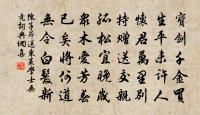 寶劍千金買
生平未許人
懷君萬里別
持贈結交親
孤松宜晚歲
衆木愛芳春
已矣將何道
無令白髮新
陳子昂送東萊學士無
競詞典網集